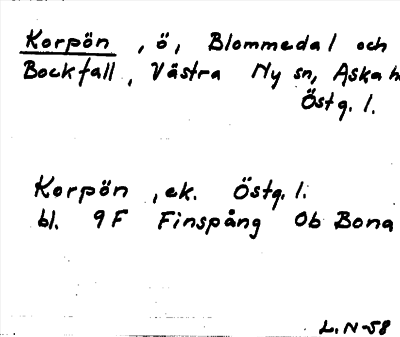 Korpön, ö, Blommedal och
Bockfall, Västra Ny sn, Aska h
Östg. l.
Korpön, ek. Östg. l.
bl. 9F Finspång Ob Bona
L. N-58